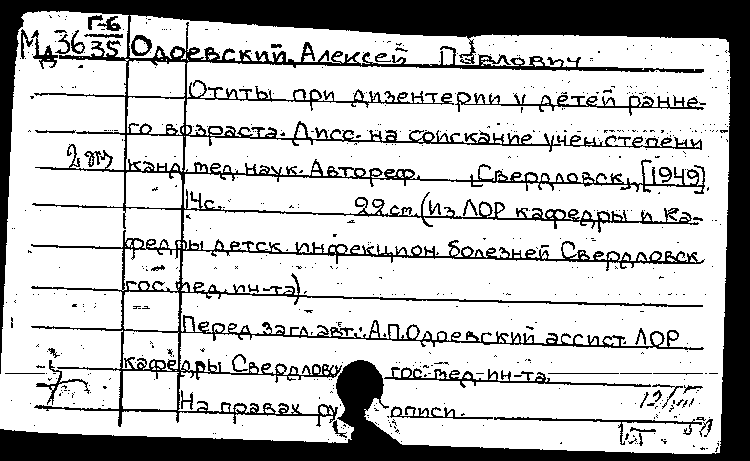 Мд36 Г-6/35 Одоевский, Алексей Павлович
Отиты при дизентерии у детей ранне-
го возраста. Дисс. на соискание учен. степени
2 эк канд. мед. наук. Автореф. [Свердловск], [1949].
14с. 22 см. (Из ЛОР кафедры и ка-
федры детск. инфекцион. болезней Свердловск
гос. мед. ин-та).
Перед загл. авт.: А.П. Одоевский ассист. ЛОР
кафедры Свердловск гос. мед. ин-та.
На правах рукописи.
12/III